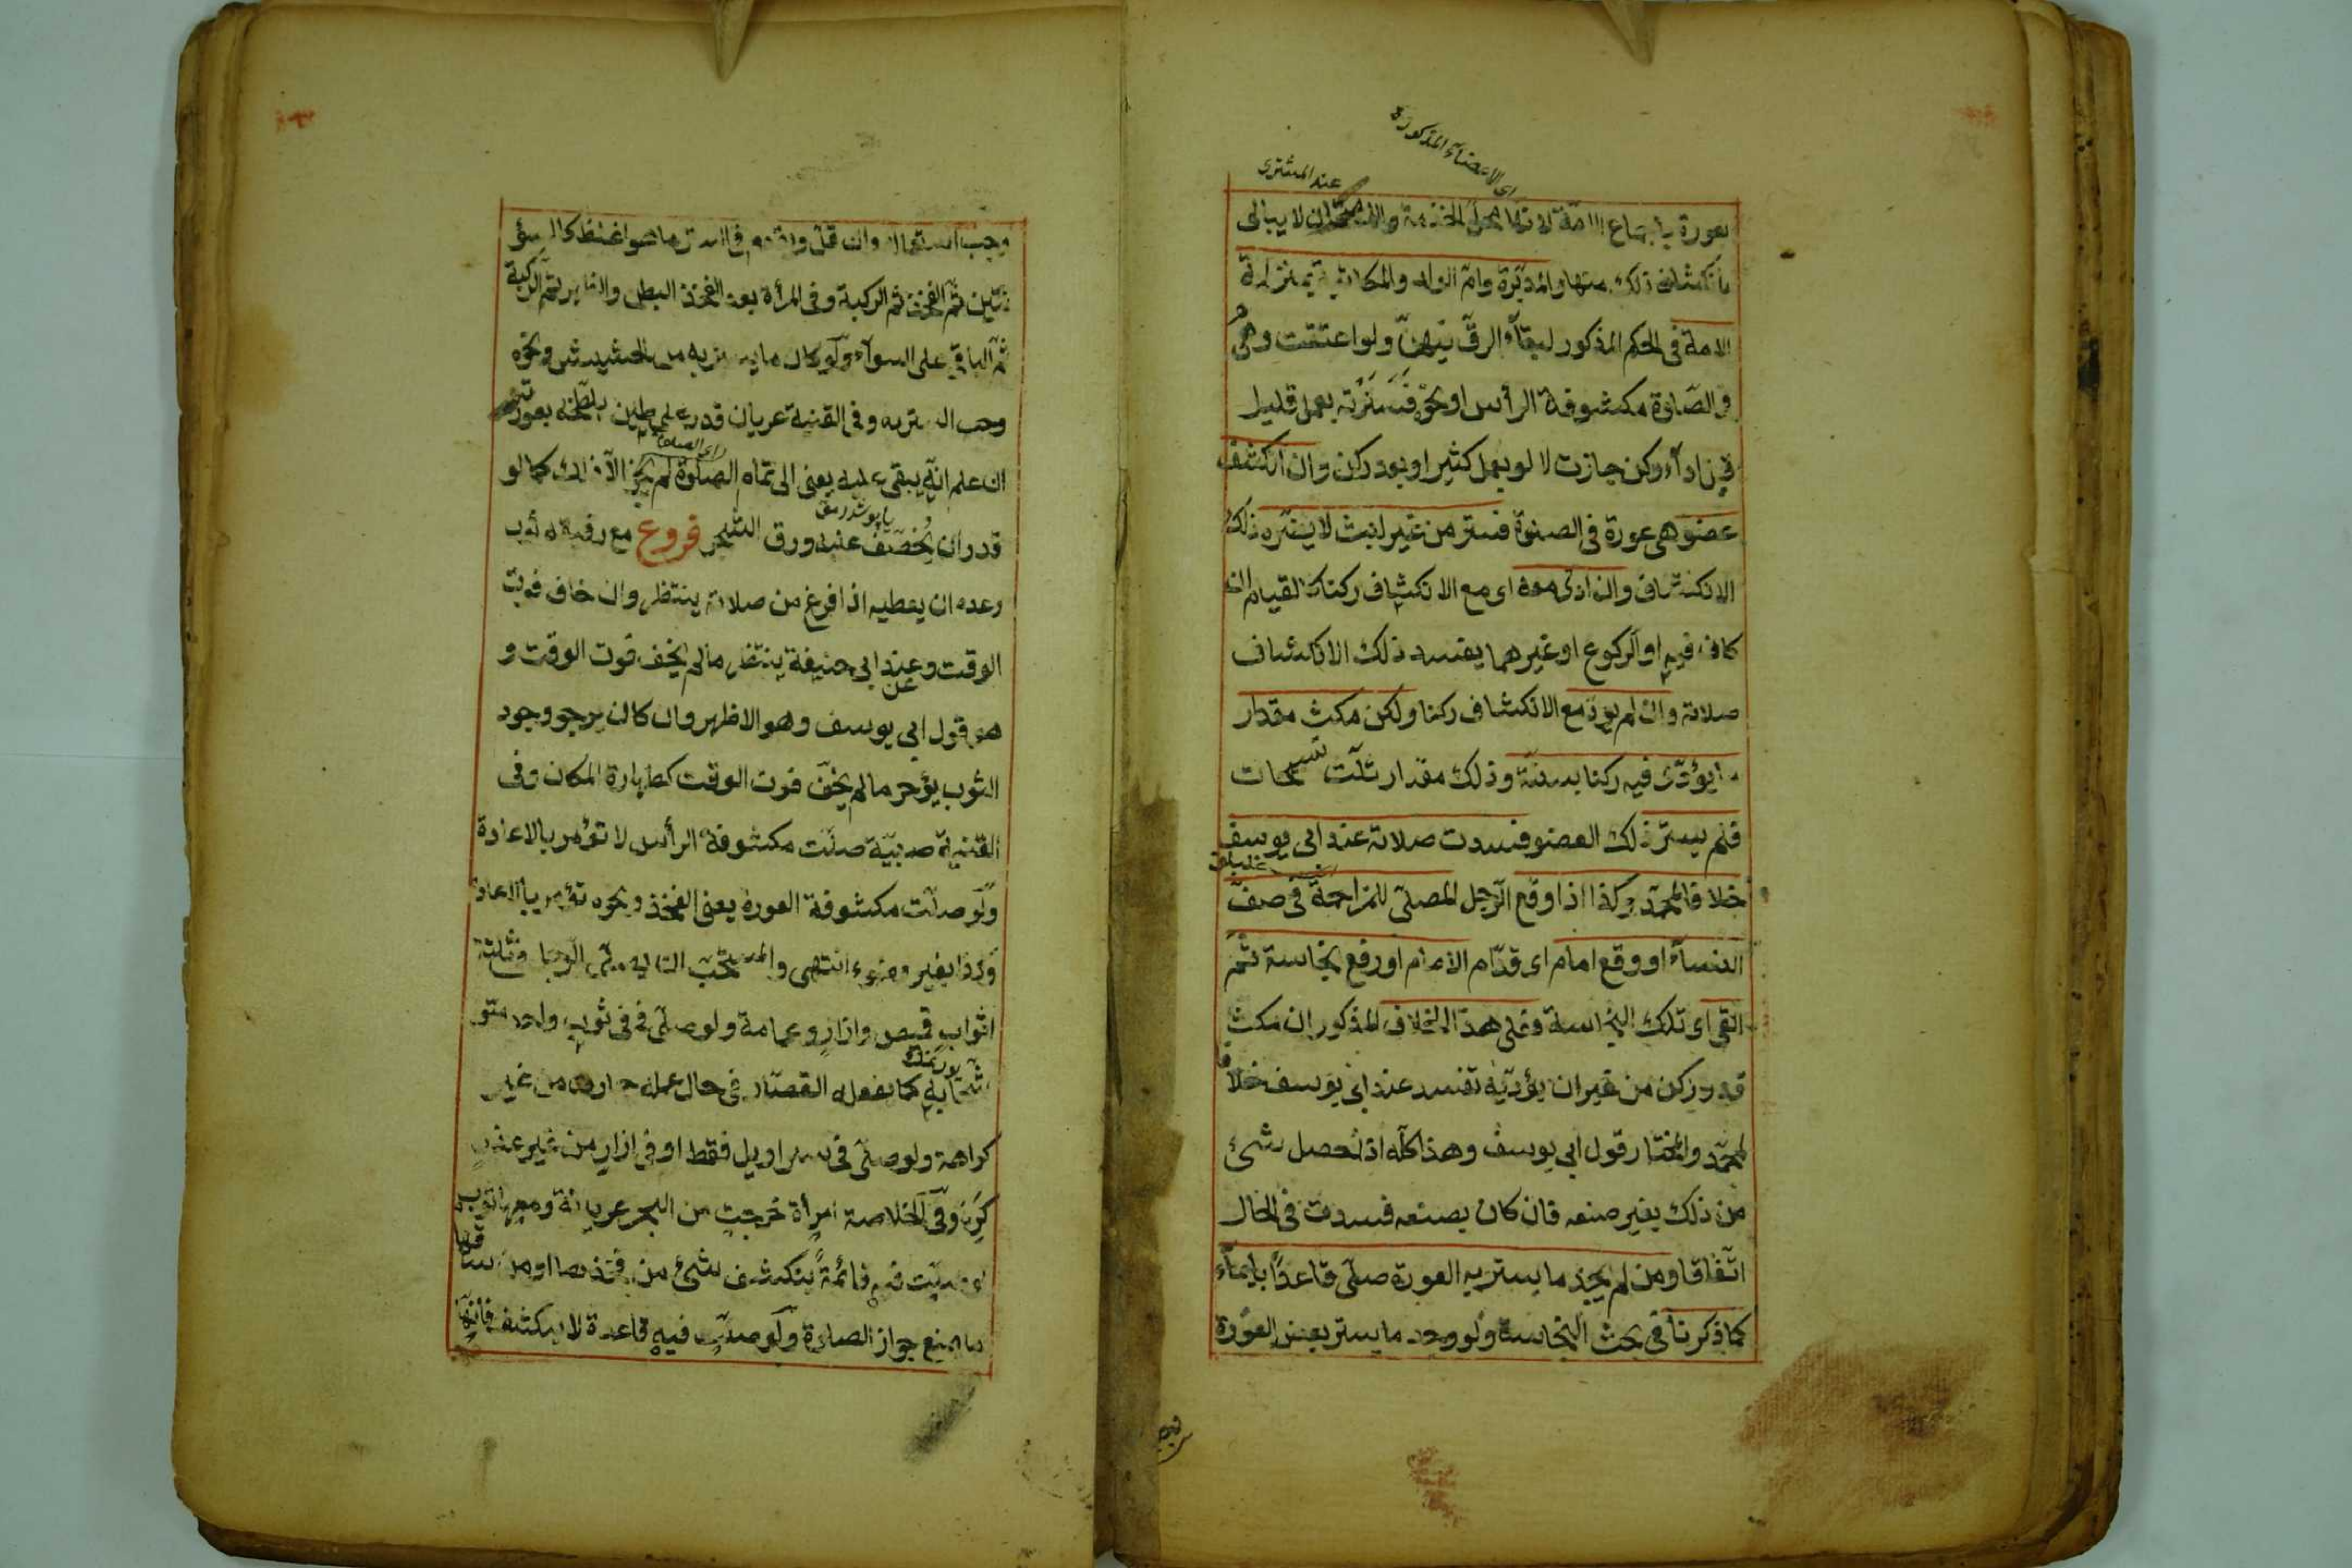 اى الاعضاء المذكورة
عند المشترى
بعورة باجماع الامة لانها محل الخدمة والامتحان لا يبالى
بانكشاف ذلك منها والمدبّرة وامّ الولد والمكاتبة بمنزلة
الامة فى الحكم المذكور لبقاء الرقّ فيهنّ ولو اعتقت وهى
فى الصّلوة مكشوفة الرأس او نحوه فسترته بعمل قليل
قبل اداء ركن جازت لا لو بعمل كثير او بعد ركن وان انكشف
عضو هى عورة فى الصلوة فستر من غير لبث لا يضرّه ذلك
الانكشاف وان ادّى معه اى مع الانكشاف ركنا كالقيام ان
كان فيه او الركوع او غيرهما يفسد ذلك الانكشاف
صلاته وان لم يؤدّ مع الانكشاف ركنا ولكن مكث مقدار
ما يؤدّى فيه ركنا بسنّة وذلك مقدار ثلث تسبيحات
فلم يستر ذلك العضو فسدت صلاته عند ابى يوسف
خلافا لمحمّد وكذا اذا وقع الرّجل المصلّى للمزاحمة فى صفّ
النساء او وقع امام اى قدّام الامام او رفع نجاسة ثمّ
القى اى تلك النجاسة وعلى هذا الخلاف المذكور ان مكث
قدر ركن من غير ان يؤدّيه تفسد عند ابى يوسف خلافا
لمحمّد والمختار قول ابى يوسف وهذا كلّه اذا حصل شئ
من ذلك بغير صنعه فان كان بصنعه فسدت فى الحال
اتّفاقا ومن لم يجد ما يستر به العورة صلّى قاعدًا بايماء
كما ذكرنا فى بحث النجاسة ولو وجد ما يستر بعض العورة
وجب استعماله وان قلّ ويقدم فى الستر ما هو اغلظ كالسؤ
تين ثمّ الفخذ ثم الركبة وفى المرأة بعد الفخذ البطن والظهر ثمّ الركبة
ثمّ الباقى على السوآء ولو كان ما يستر به من الحشيش ونحوه
وجب الستر به وفى القنية عريان قدر على طين يلطّخه بعورته
ان علم انّه يبقى عليه يعنى الى تمام الصلوة لم يجز الّا ذلك كما لو
قدر ان يخصف عليه ورق الشجر فروع مع رفيقه ثوب
وعده ان يعطيه اذا فرغ من صلاته ينتظر وان خاف فوت
الوقت وعند ابى حنيفة ينتظر ما لم يخف فوت الوقت و
هو قول ابى يوسف وهو الاظهر وان كان يرجو وجود
الثوب يؤخر ما لم يخف فوت الوقت كطهارة المكان وفى
القنية صبيّة صلّت مكشوفة الرأس لا تؤمر بالاعادة
ولو صلّت مكشوفة العورة يعنى الفخذ ونحوه تؤمر بالاعادة
وكذا بغير وضوء انتهى والمستحبّ ان يصلّى الرجل فى ثلثة
اثواب قميص وازار وعمامة ولو صلّى فى ثوب واحد متو
شّحا به كما يفعله القصّار فى حال عمله جاز من غير
كراهة ولو صلّى فى سراويل فقط او فى ازار من غير عذر
كره وفى الخلاصة امرأة خرجت من البحر عريانة ومعها ثوب
لو صلّت فيه قائمةً ينكشف شئ من فخذها او من ساقها
ما يمنع جواز الصلوة ولو صلّت فيه قاعدة لا ينكشف فانّها